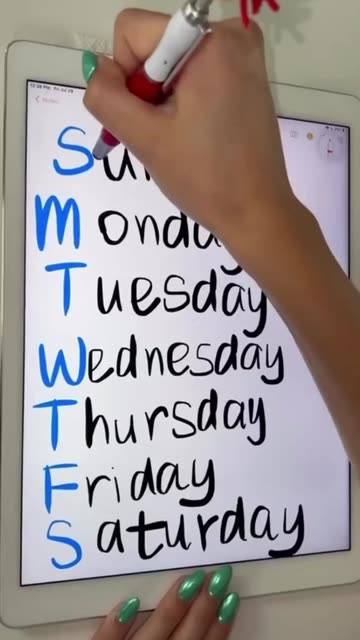 12:28 PM Fri Jul
Notes
Monday
Tuesday
Wednesday
Thursday
Friday
Saturday